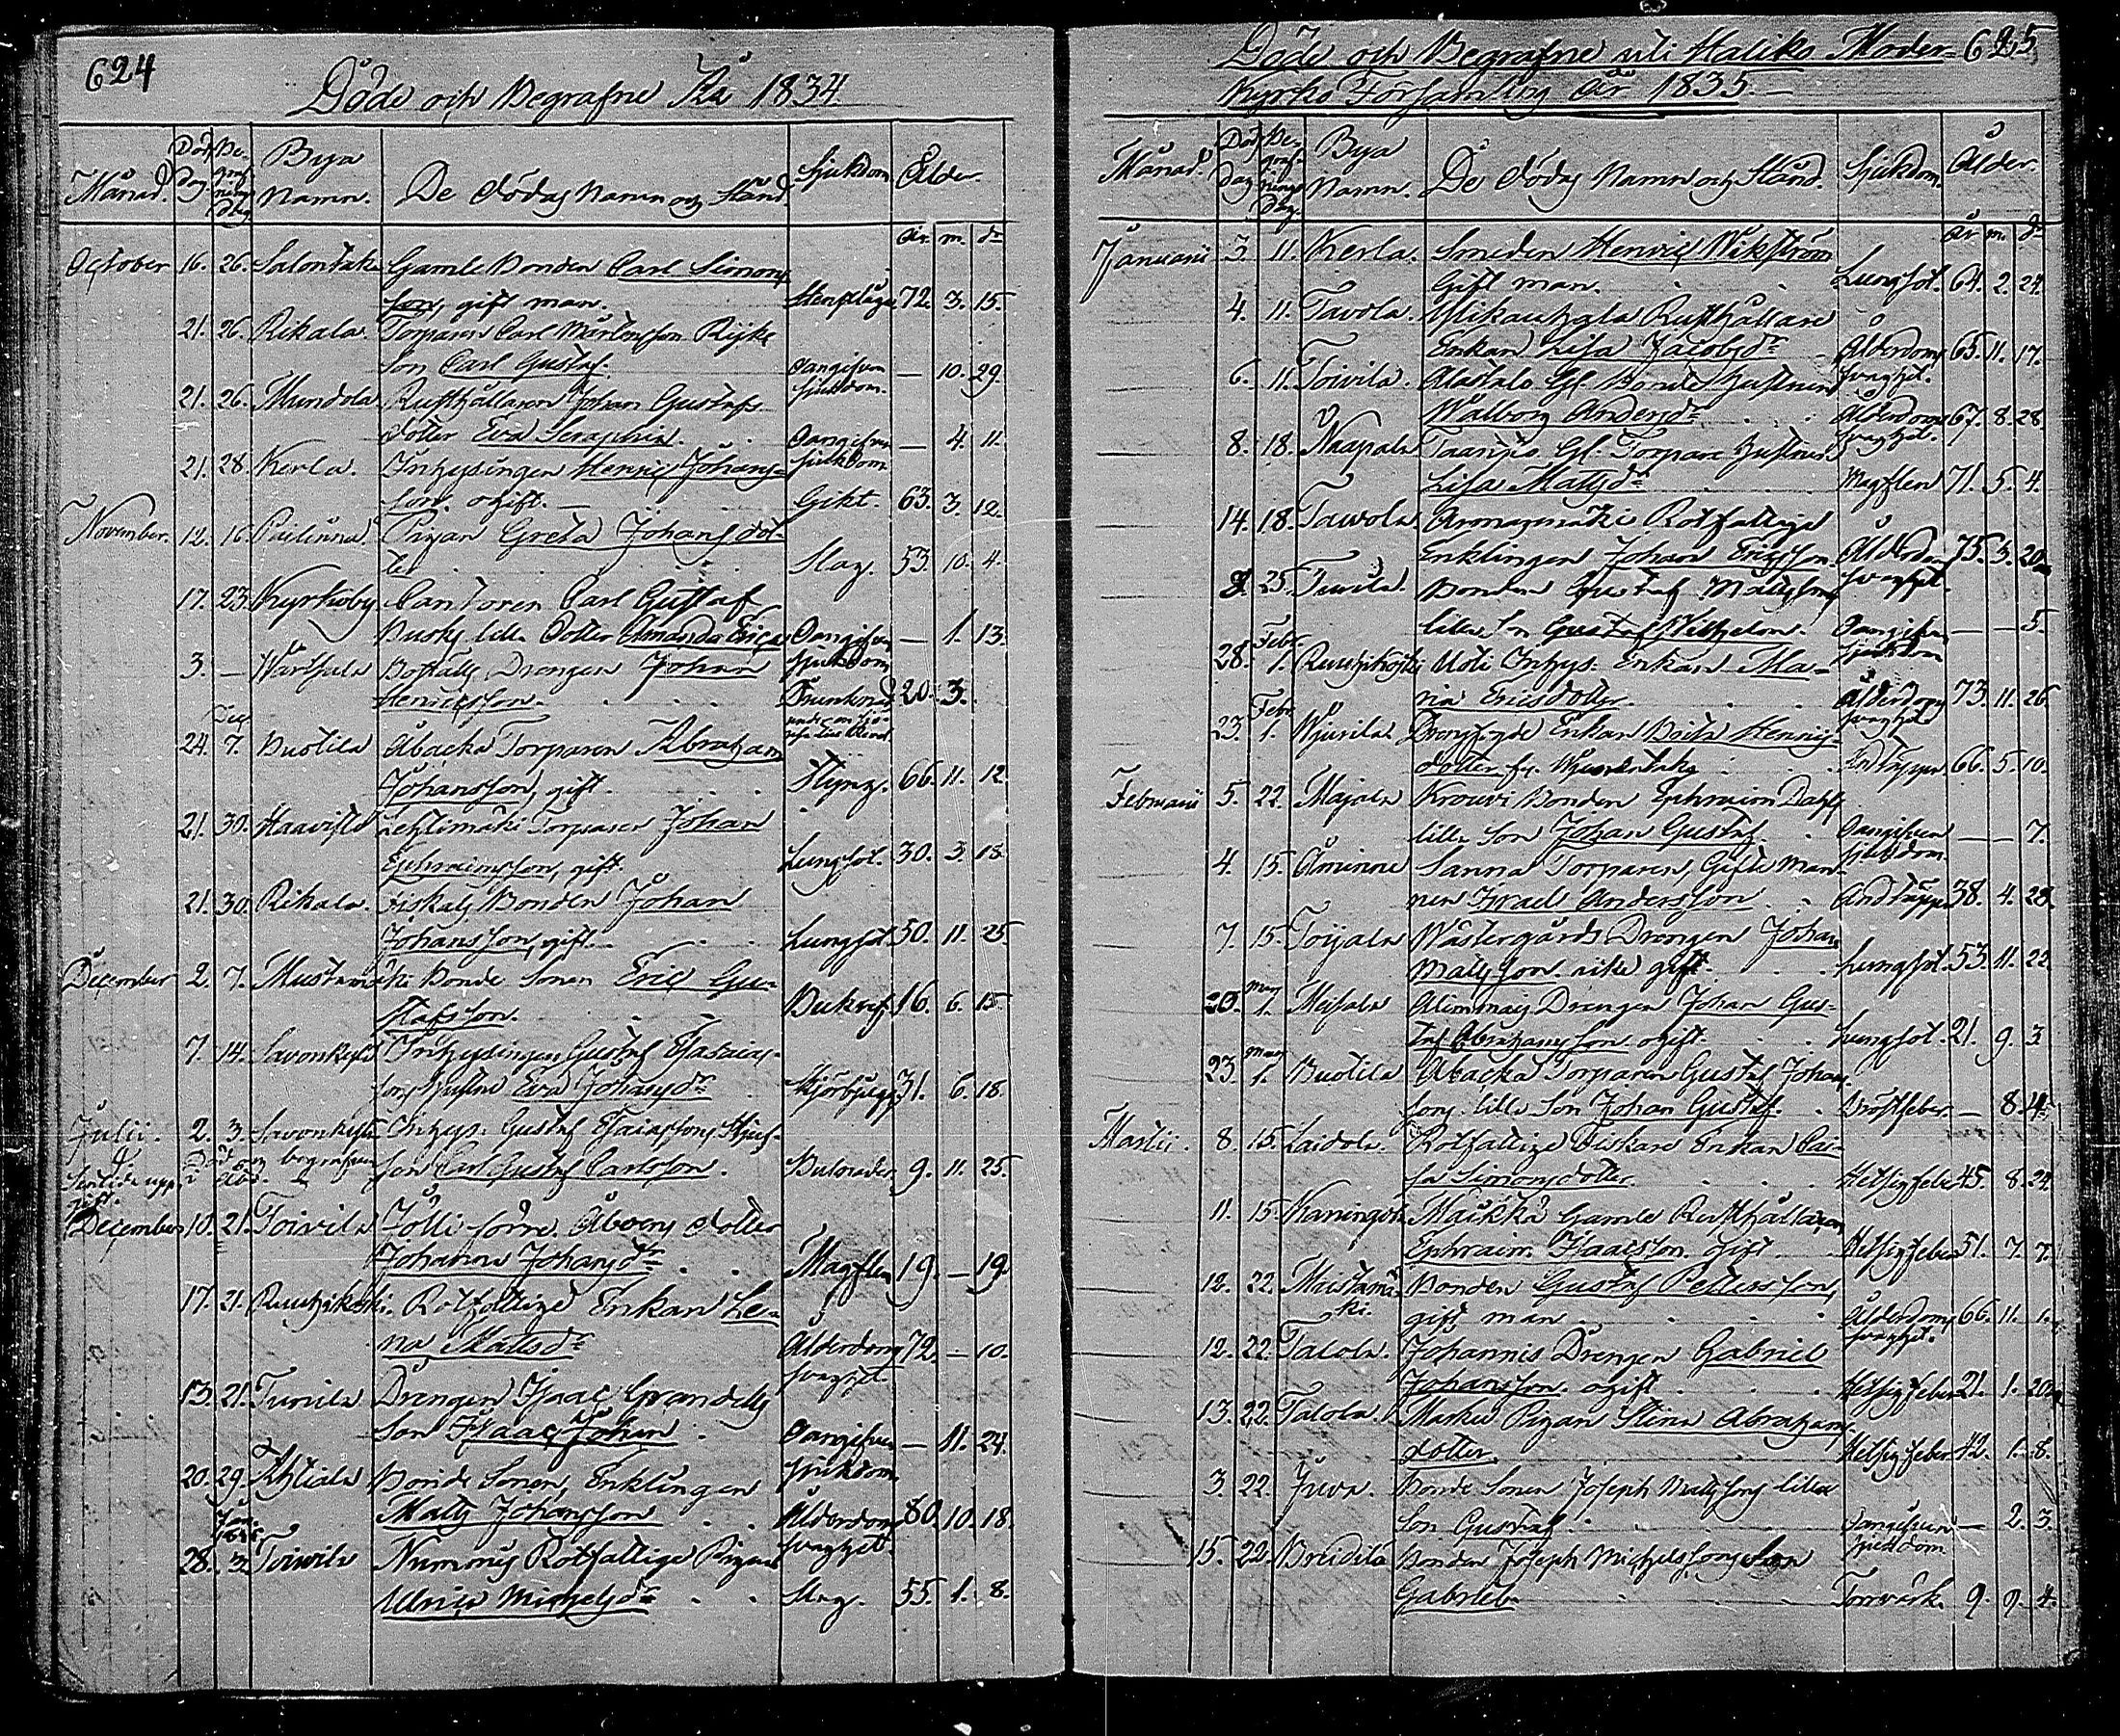 624
Döde och Begrafne På 1834.
Månad. Död Dag Begrafnings dag Bya Namn. De Dödas Namn och Stånd. Sjukdom Ålder.
År. m. dr
October 16. 26. Salontaka Gamle Bonden Carl Simons
son, gift man. 72. 3. 15.
21. 26. Rikala. Torparen Carl Mårtensson
Son Carl Gustaf. Oangifven sjukdom. — 10. 29.
21. 26. Mundola Rusthållaren Johan Gustafs
dotter Eva Seraphin. Oangifven sjukdom — 4. 11.
21. 28. Kerla. Inhysingen Henric Johans-
son. ogift. — Gikt. 63. 3. 12.
November. 12. 16. Pailinna Pigan Greta Johansdot-
ter Slag. 53 10. 4.
17. 23. Kyrkoby Cantoren Carl Gustaf
lilla Dotter Amanda Erica Oangifven sjukdom — 1. 13.
3. — Wartsala Drengen Johan
Henricsson. Drunknad 20. 3.
24. Dec 7. Buotila Åbacka Torparen Abraham
Johansson, gift. Styng. 66. 11. 12.
21. 30. Haavisto Lehtimäki Torparen Johan
Ephraimsson, gift. Lungsot. 30. 3. 18.
21. 30. Rikala. Fiskals Bonden Johan
Johansson, gift. Lungsot 50. 11. 25.
December 2. 7. Mustamäki Bonde Sonen Eric Gu-
stafsson. Bukref. 16. 6. 15.
7. 14. Savonkylä Inhysingen Gustaf Esaias-
sons Hustru Eva Johansdr Skörbjugg 31. 6. 18.
Julii. 2. 3. Savonkylä Inhys. Gustaf Esaiassons Styf-
Död och begrafven i Åbo. son Carl Gustaf Carlsson. 9. 11. 25.
December 10. 21. Toivila Jolli förre Åboens dotter
Johanna Johansdr Magflen 19. — 19.
17. 21. Ruuhikoski. Rotfattige Enkan Le-
na Mattsdr Ålderdoms svaghet. 72. — 10.
13. 21. Turila Drengen Isaac Grandells
Son Isaac Johan. Oangifven sjukdom — 11. 24.
20. 29. Ahtiala Bonde Sonen, Enklingen
Matts Johansson Ålderdoms svaghet. 80. 10. 18.
28. Jan. 1835 Toivila Nummis Rotfattige Pigan
Ulrica Michelsdr Slag. 55. 1. 8.
Döde och Begrafne uti Haliko Moder- 625
Kyrko Församling År 1835.—
Månad. Död Dag Begrafnings Dag. Bya Namn. De Dödas Namn och Stånd. Sjukdom. Ålder.
År m. dr
Januarii 3. 11. Kerla. Smeden Henric Wikström
Gift man. Lungsot. 64. 2. 24.
4. 11. Tavola. Rusthållare
Enkan Lisa Jacobsdr Ålderdoms svaghet. 65. 11. 17.
6. 11. Toivila. Alastalo Gl. Bonde hustrun
Walborg Andersdr Ålderdoms svaghet. 67. 8. 28.
8. 18. Naapala Gl. Torpare hustrun
Lisa Mattsdr Magflen 71. 5. 4.
14. 18. Tavola. Rotfattige
Enklingen Johan Ericsson. Ålderdoms svaghet. 75. 3. 20.
25. Turila. Bonden Gustaf Mattssons
lilla Son Gustaf Wilhelm. Oangifven sjukdom — — 5.
28. Febr. 1. Ruuhikoski Uoti Inhys. Enkan Ma-
ria Ericsdotter. Ålderdoms svaghet 73. 11. 26.
23. Febr. 1. Wiurila. Drengfogde Enkan Brita Henrics-
dotter fr. Andtäppa. 66. 5. 10.
Februarii 5. 22. Majala Krouvi Bonden Ephraim
lilla Son Johan Gustaf Oangifven sjukdom — — 7.
4. 15. Åminne Sanna Torparen, Gifte man-
nen Israel Andersson Andtäppa 38. 4. 28.
7. 15. Toijala Wästergårds Drengen Johan
Mattsson. gift. Lungsot. 53. 11. 22.
20. Mars 1. Meisala Drengen Johan Gus-
taf Abrahamsson ogift. Lungsot. 21. 9. 3.
23. Mars 1. Buotila Åbacka Torparen Gustaf Johans
sons lilla Son Johan Gustaf. Bröstfeber. — 8.
Martii. 8. 15. Laidola. Rotfattige Fiskare Enkan Cai-
sa Simonsdotter. Hetsigfeber 45. 8. 24.
11. 15. Kaningola Maikka Gamle Rusthållaren
Ephraim Isaacsson. Gift Hetsigfeber 51. 7. 7.
12. 22. Mustamäki. Bonden Gustaf Pettersson,
gift man Ålderdoms svaghet. 66. 11. 1.
12. 22. Talola. Johannis Drengen Gabriel
Johansson. ogift Hetsigfeber 21. 1. 20.
13. 22. Talola Marku Pigan Stina Abrahams
dotter. Hetsigfeber 42. 1. 8.
3. 22. Juva. Bonde Sonen Joseph Mattsons lilla
Son Gustaf Oangifven sjukdom — 2. 3.
15. 22. Breidilä Bonden Joseph Michelssons Son
Gabriel. Torrvärk. 9. 9. 4.